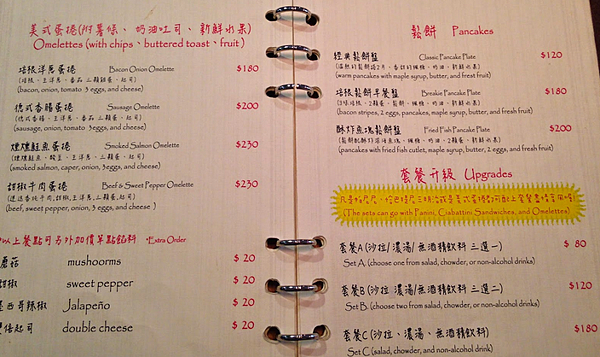 美式蛋捲(附薯條、奶油吐司、新鮮水果)
Omelettes (with chips、buttered toast、fruit)
培根洋蔥蛋捲 Bacon Onion Omelette $180
(培根、三洋蔥、番茄,三顆雞蛋、起司)
(bacon, onion, tomato 3eggs, and cheese)
德式香腸蛋捲 Sausage Omelette $200
(sausage, onion, tomato 3eggs, and cheese)
煙燻鮭魚蛋捲 Smoked Salmon Omelette $230
(smoked salmon, caper, onion, 3eggs, and cheese)
甜椒牛肉蛋捲 Beef & Sweet Pepper Omelette $230
(beef, sweet pepper, onion, 3 eggs, and cheese)
以上餐點可另外加價單點餡料 *Extra Order
蘑菇 mushoorms $20
甜椒 sweet pepper $20
墨西哥辣椒 Jalapeño $20
雙倍起司 double cheese $20
鬆餅 Pancakes
經典鬆餅盤 Classic Pancake Plate $120
(warm pancakes with maple syrup, butter, and frest fruit)
培根鬆餅早餐盤 Breakie Pancake Plate $180
(bacon stripes, 2 eggs, pancakes, maple syrup, butter, and fresh fruit)
酥炸魚塊鬆餅盤 Fried Fish Pancake Plate $200
(pancakes with fried fish cutlet, maple syrup, butter, 2 eggs, and fresh fruit)
套餐升級 Upgrades
(The sets can go with Panini, Ciabattini Sandwiches, and Omelettes)
套餐A (沙拉/濃湯/無酒精飲料 三選一) $80
Set A (choose one from salad, chowder, or non-alcohol drink)
套餐B (沙拉/濃湯/無酒精飲料 三選二) $120
Set B (choose two from salad, chowder, or non-alcohol drinks)
套餐C (沙拉、濃湯、無酒精飲料) $180
Set C (salad, chowder, and non-alcohol drink)